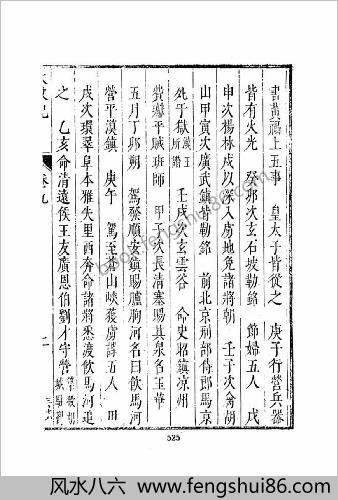 書黃上五事 皇太子皆從之 庚子行營兵器
皆有火光 癸卯次玄石坡勒銘 節婦五人 戊
申次楊林戍以深入虜地免諸將朝 壬子次禽胡
山甲寅次廣武鎮皆勒銘 前北京刑部侍郎馬京
死于獄漢王所譖 壬戌次玄雲谷 命史昭鎮涼州
費瓛平賊班師 甲子次長清塞賜其泉名玉華
五月丁卯朔 駕發順安鎮賜臚朐河名曰飲馬河
營平漠鎮 庚午 駕至蒼山峽獲虜諜五人 甲
戌次環翠阜本雅失里西奔命諸將悉渡飲馬河追
之 乙亥命清遠侯王友廣恩伯劉才守營
卷九
525
book.fengshui86.com
风水八六 www.fengshui86.com